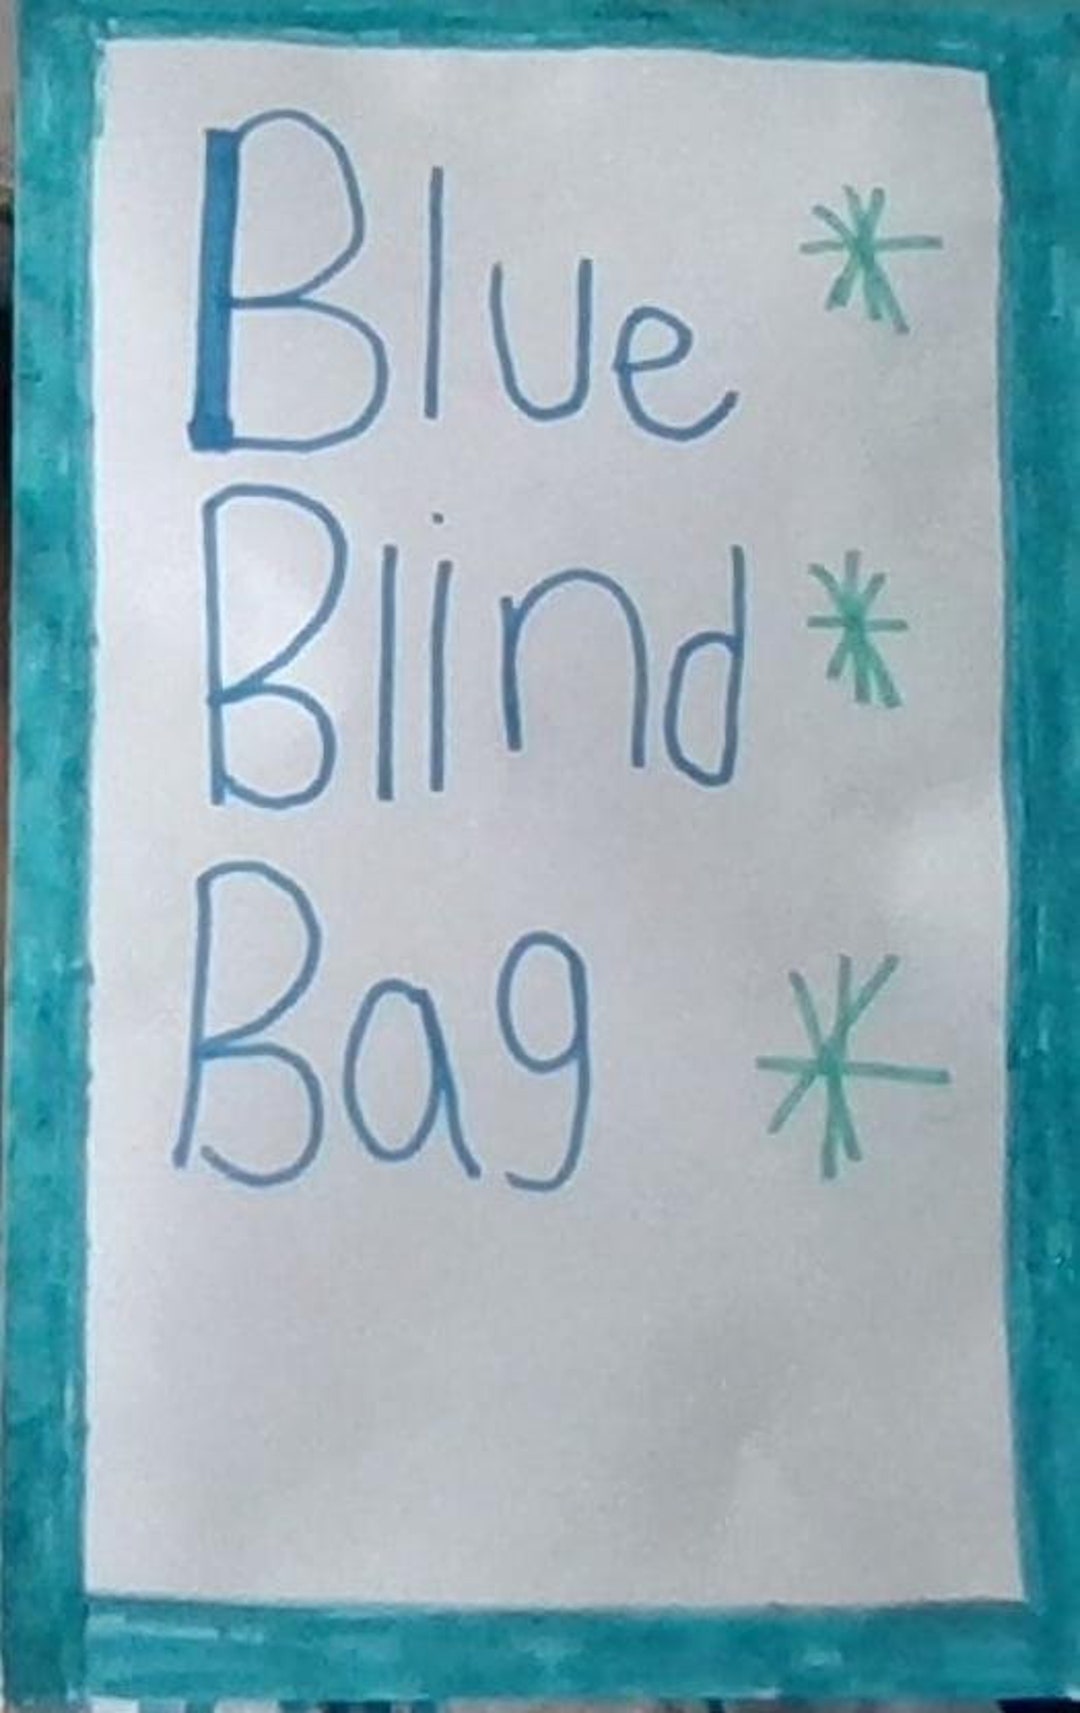 Blue
Blind
Bag